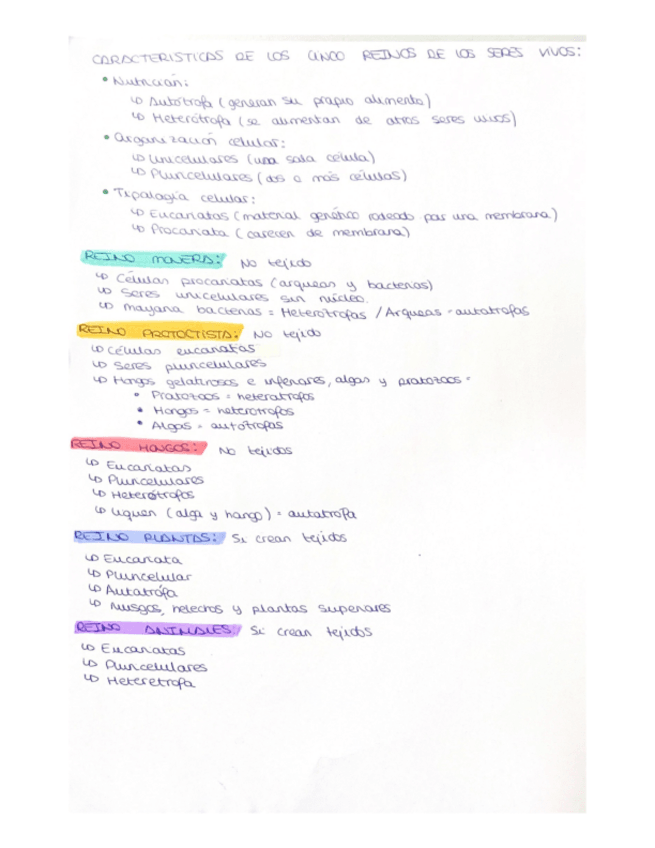 CARACTERISTICAS DE LOS CINCO REINOS DE LOS SERES VIVOS:
• Nutrición:
↳ Autótrofa (generan su propio alimento)
↳ Heterótrofa (se alimentan de otros seres vivos)
• Organización celular:
↳ Unicelulares (una sola célula)
↳ Pluricelulares (dos o más células)
• Tipología celular:
↳ Eucariotas (material genético rodeado por una membrana)
↳ Procariota (carecen de membrana)
REINO MONERA: No tejido
↳ Células procariotas (arqueas y bacterias)
↳ Seres unicelulares sin núcleo.
↳ Mayoria bacterias = Heterótrofas / Arqueas = autotrofas
REINO PROTOCTISTA: No tejido
↳ Células eucariotas
↳ Seres pluricelulares
↳ Hongos gelatinosos e inferiores, algas y protozoos =
• Protozoos = heterotrofos
• Hongos = heterotrofos
• Algas = autótrofas
REINO HONGOS: No tejidos
↳ Eucariotas
↳ Pluricelulares
↳ Heterótrofos
↳ Liquen (alga y hongo) = autotrofa
REINO PLANTAS: Si crean tejidos
↳ Eucariota
↳ Pluricelular
↳ Autotrófa
↳ Musgos, helechos y plantas superiores
REINO ANIMALES: Si crean tejidos
↳ Eucariotas
↳ Pluricelulares
↳ Heteretrofa